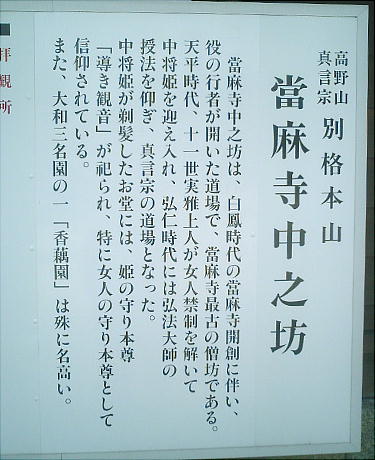 高野山
真言宗
別格本山
當麻寺中之坊
當麻寺中之坊は、白鳳時代の當麻寺開創に伴い、
役の行者が開いた道場で、當麻寺最古の僧坊である。
天平時代、十一世実雅上人が女人禁制を解いて
中将姫を迎え入れ、弘仁時代には弘法大師の
授法を仰ぎ、真言宗の道場となった。
中将姫が剃髪したお堂には、姫の守り本尊
「導き観音」が祀られ、特に女人の守り本尊として
信仰されている。
また、大和三名園の一「香藕園」は殊に名高い。
拝観所